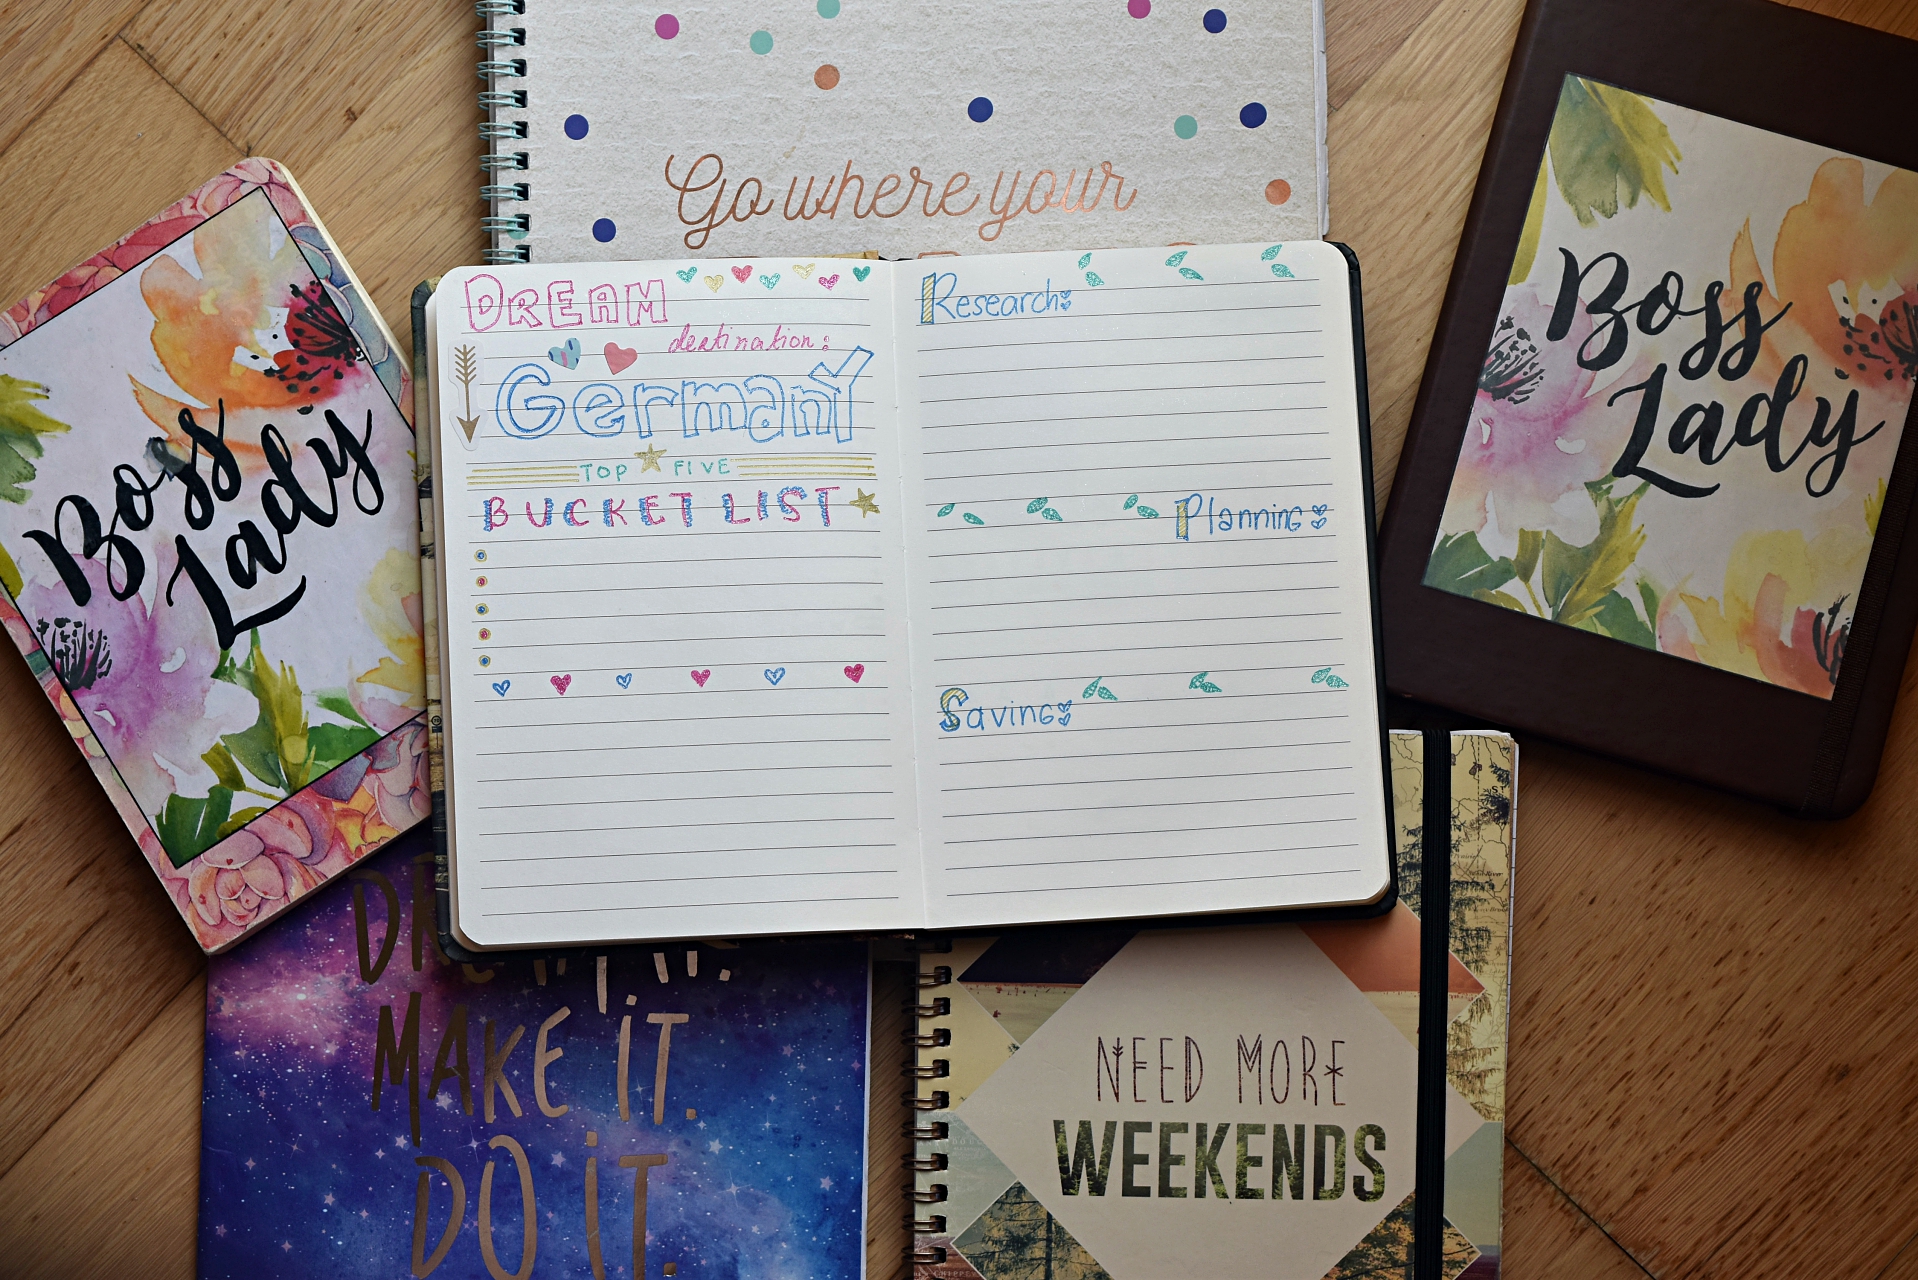 Go where your
Boss
Lady
DREAM
destination:
GermanY
TOP FIVE
BUCKET LIST
Research:
Planning:
Saving:
Boss
Lady
MAKE iT.
DO iT.
NEED MORE
WEEKENDS